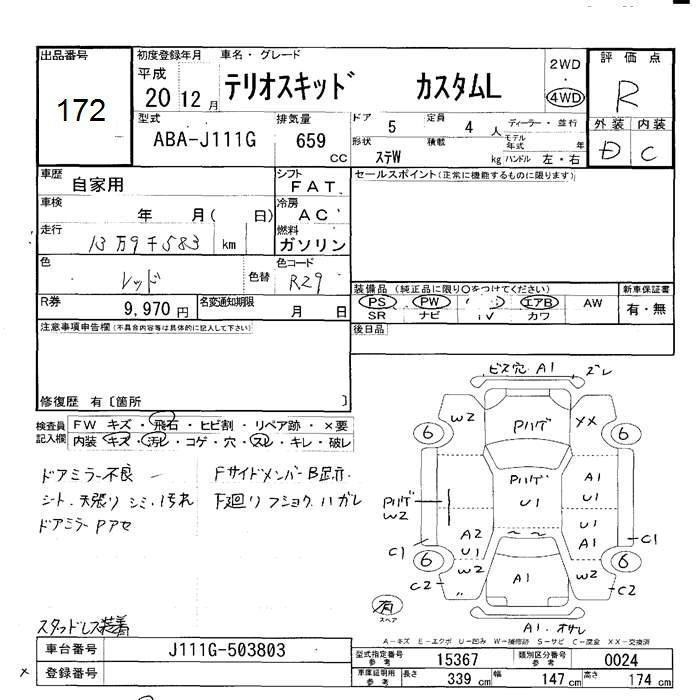 出品番号 172
初度登録年月 車名・グレード
平成 20 12月 テリオスキッド カスタムL
2WD・4WD
評価点 R
型式 ABA-J111G
排気量 659 CC
ドア 5 定員 4人
ディーラー・並行
形状 ステW 積載 kg
モデル年式 年
ハンドル 左・右
外装 内装
D C
車歴 自家用
シフト FAT
セールスポイント(正常に機能するものに限ります)
車検 年 月( 日)
冷房 AC
走行 13万9千583 km
燃料 ガソリン
色 レッド 色替
色コード R29
装備品 (純正品に限り○をつけてください)
新車保証書
PS PW エアB AW
有・無
SR ナビ TV カワ
R券 9,970円
名変通知期限 月 日
後日品
注意事項申告欄(不具合内容等は具体的に記入して下さい)
修復歴 有〔箇所 〕
検査員記入欄
FW キズ・飛石・ヒビ割・リペア跡・×要
内装・キズ・汚レ・コゲ・穴・スレ・キレ・破レ
ドアミラー不良
シート.天張り シミ.汚れ
ドアミラー Pアセ
FサイドメンバーB
F廻り フショク.ハガレ
ビス穴 A1 ズレ
W2 Pハゲ XX
6 6
Pハゲ U1
A1
Pハゲ W2
U1
A1
A2
U1
C1 C1
6 6
W2 A1 W2
C2 C2
有
スペア
A1.オサレ
A-キズ E-エクボ U-凹み W-補修跡 S-サビ C-腐食 XX-交換済
スタッドレス装着
車台番号 J111G-503803
登録番号
型式指定番号 参考 15367
類別区分番号 参考 0024
車庫証明用 参考 長さ 339 cm 幅 147 cm 高さ 174 cm